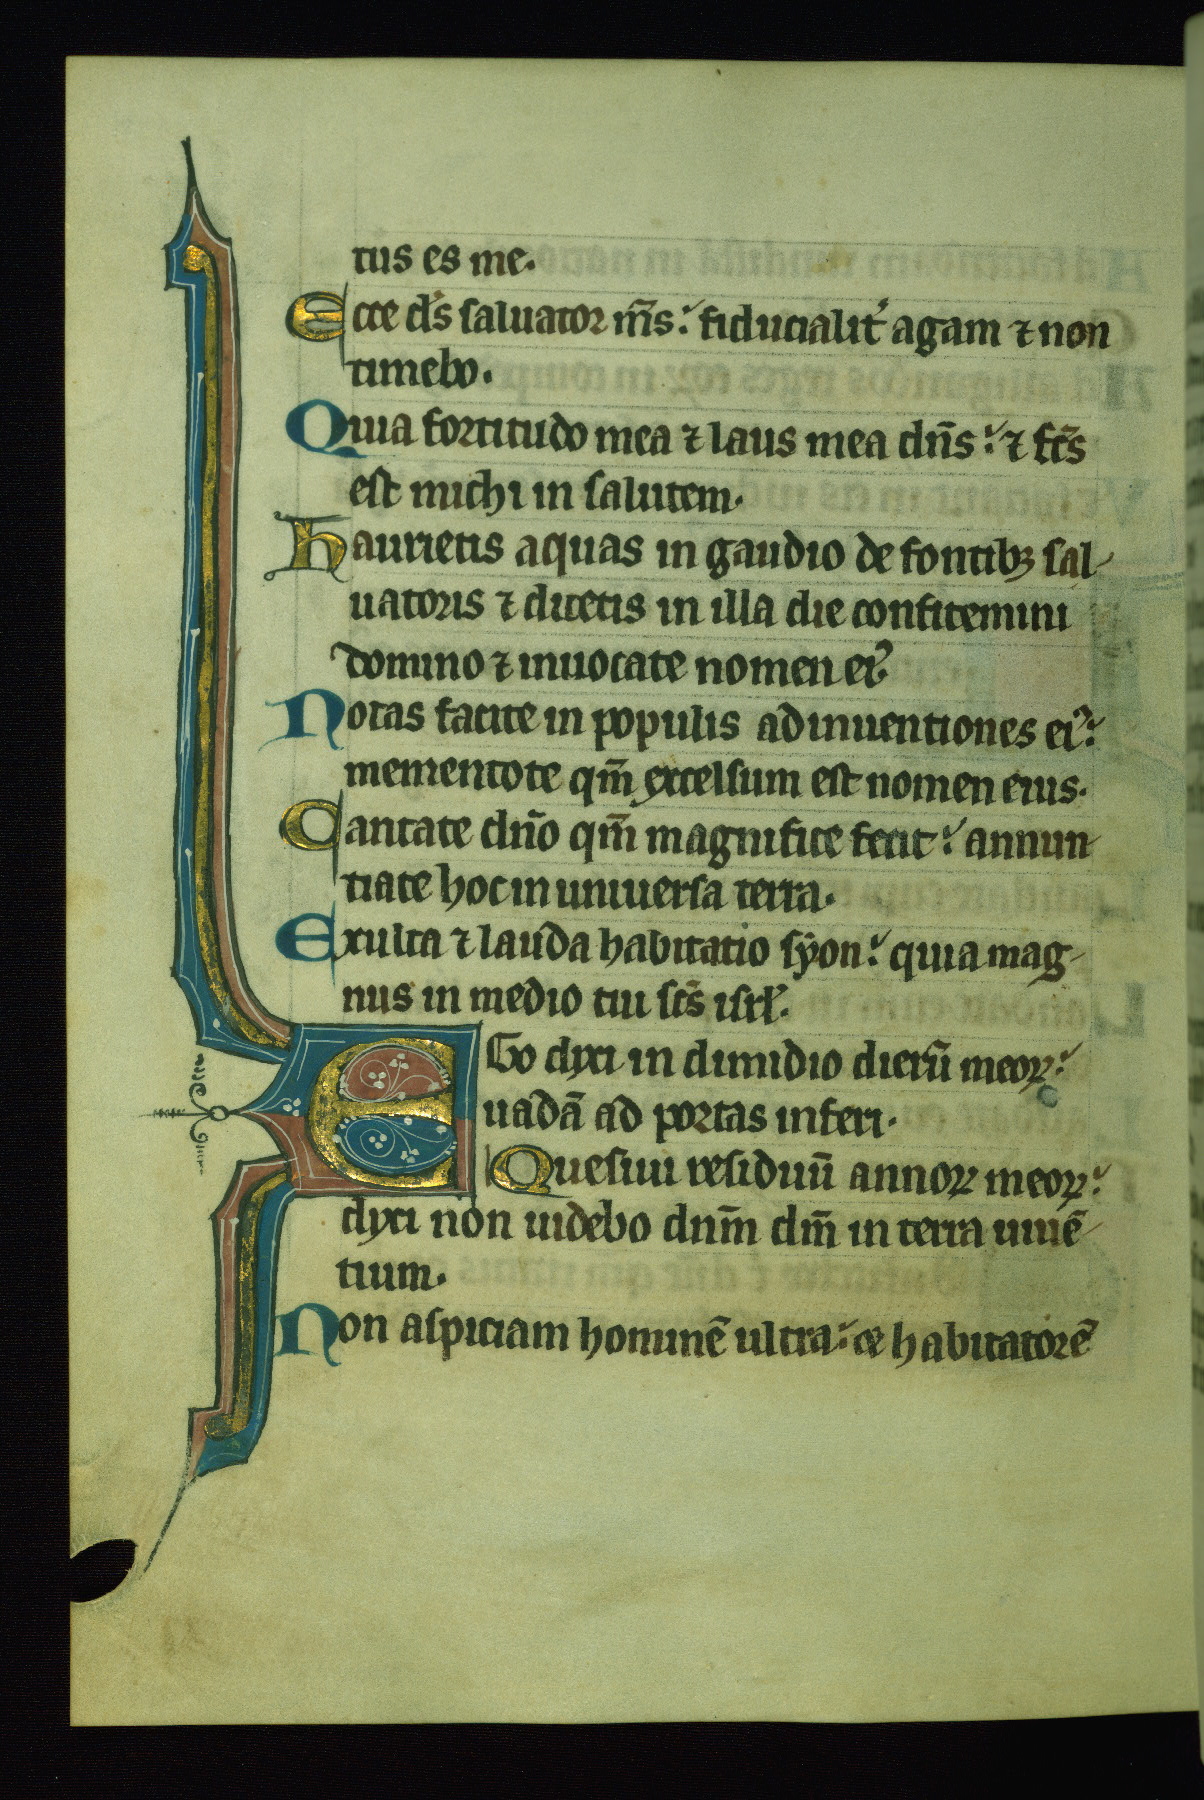 tus es me.
Ecce d̄s saluator m̄s: fiducialit̾ agam ⁊ non
timebo.
Quia fortitudo mea ⁊ laus mea dn̄s: ⁊ fc̄s
est michi in salutem.
Haurietis aquas in gaudio de fontibꝫ sal-
uatoris ⁊ dicetis in illa die confitemini
domino ⁊ inuocate nomen eiꝰ.
Notas facite in populis adinuentiones eiꝰ:
mementote qm̄ excelsum est nomen eius.
Cantate dn̄o qm̄ magnifice fecit: annun-
tiate hoc in uniuersa terra.
Exulta ⁊ lauda habitatio syon: quia mag-
nus in medio tui sc̄s isrl̄.
EGo dyxi in dimidio dierū meoꝝ:
uadā ad portas inferi.
Quesiui residuū annoꝝ meoꝝ:
dyxi non uidebo dnm̄ dm̄ in terra uiuē-
tium.
Non aspiciam hominē ultra: ⁊ habitatorē